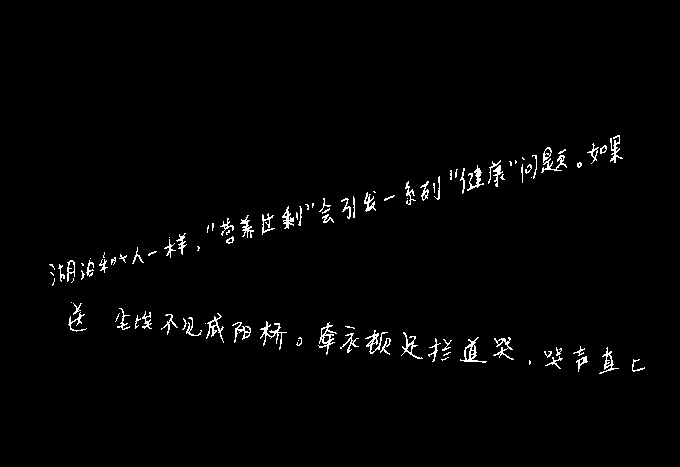 湖泊和人一样，"营养过剩"会引发一系列"健康"问题。如果
送 尘埃不见咸阳桥。牵衣顿足拦道哭，哭声直上